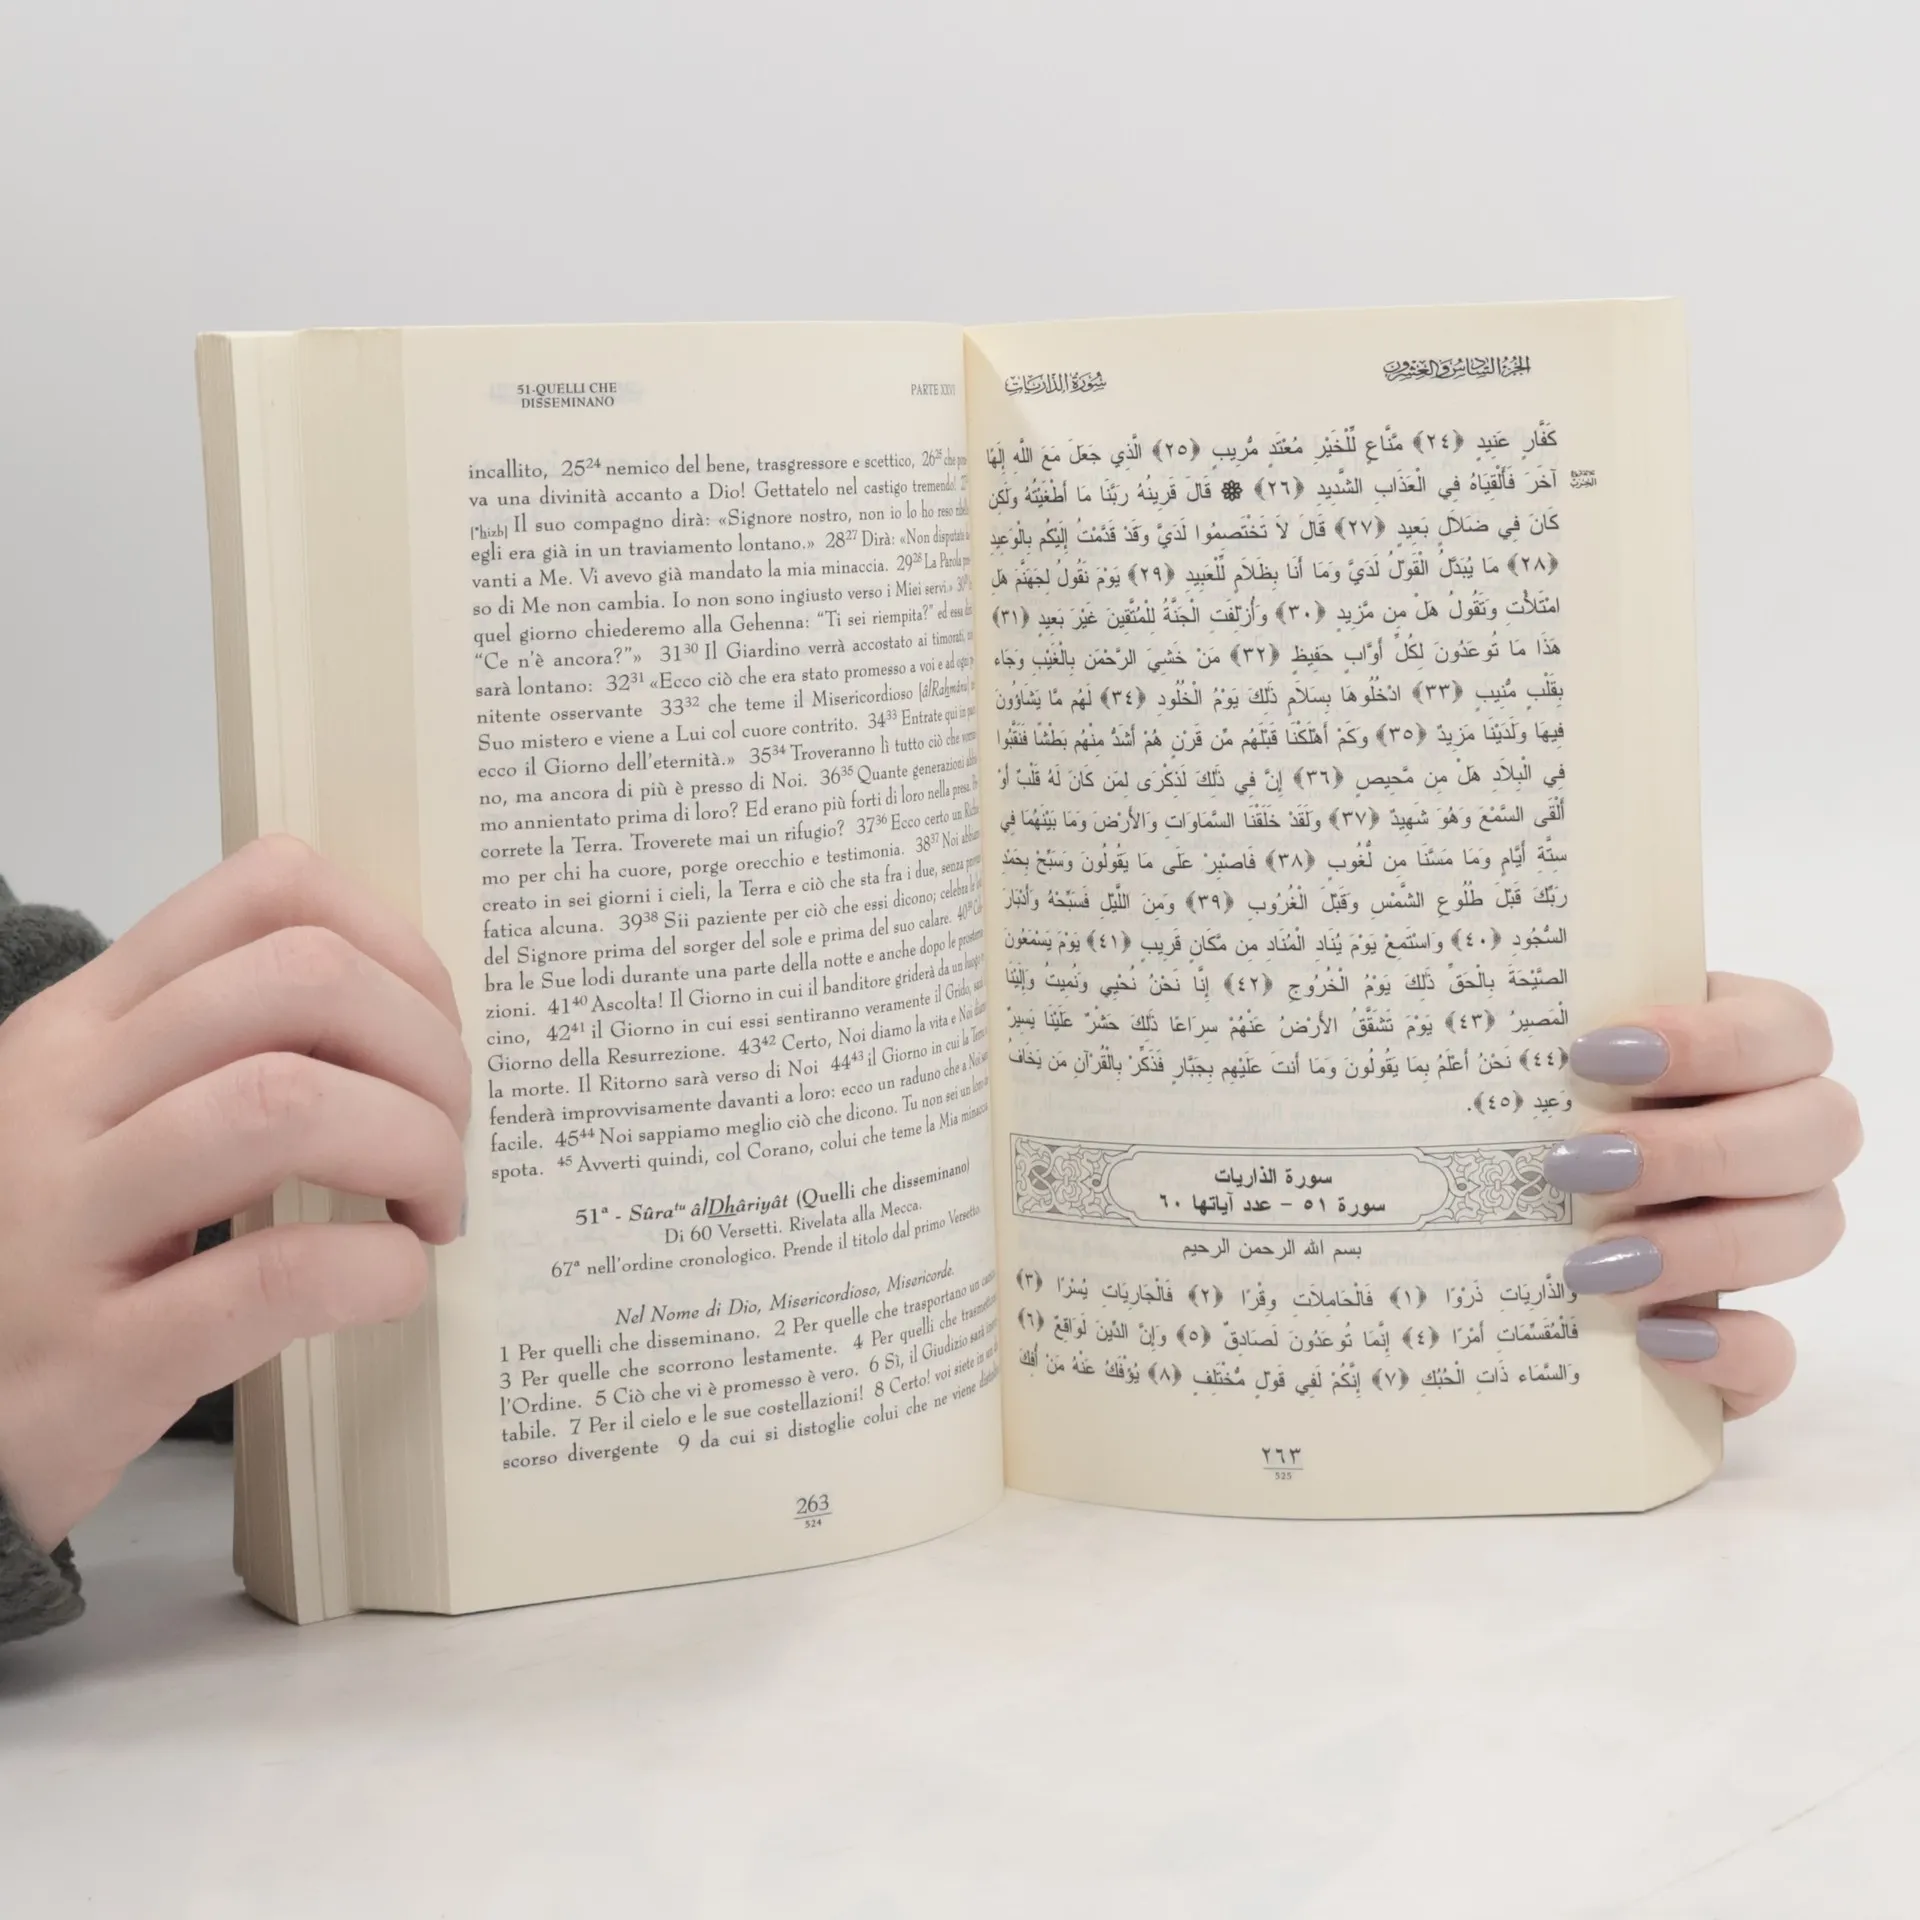 51-QUELLI CHE
DISSEMINANO
PARTE XXVI
incallito, 25²⁴ nemico del bene, trasgressore e scettico, 26²⁵ che
va una divinità accanto a Dio! Gettatelo nel castigo tremendo!
[*hizb] Il suo compagno dirà: «Signore nostro, non io lo ho reso
egli era già in un traviamento lontano.» 28²⁷ Dirà: «Non disputate
vanti a Me. Vi avevo già mandato la mia minaccia. 29²⁸ La Parola
so di Me non cambia. Io non sono ingiusto verso i Miei servi.»
quel giorno chiederemo alla Gehenna: “Ti sei riempita?” ed essa
“Ce n’è ancora?”» 31³⁰ Il Giardino verrà accostato ai timorati,
sarà lontano: 32³¹ «Ecco ciò che era stato promesso a voi e ad
nitente osservante 33³² che teme il Misericordioso [âlRahmânu]
Suo mistero e viene a Lui col cuore contrito. 34³³ Entrate qui in
ecco il Giorno dell’eternità.» 35³⁴ Troveranno lì tutto ciò che
no, ma ancora di più è presso di Noi. 36³⁵ Quante generazioni
mo annientato prima di loro? Ed erano più forti di loro nella presa.
correte la Terra. Troverete mai un rifugio? 37³⁶ Ecco certo un
mo per chi ha cuore, porge orecchio e testimonia. 38³⁷ Noi
creato in sei giorni i cieli, la Terra e ciò che sta fra i due, senza
fatica alcuna. 39³⁸ Sii paziente per ciò che essi dicono; celebra le
del Signore prima del sorger del sole e prima del suo calare.
bra le Sue lodi durante una parte della notte e anche dopo le
zioni. 41⁴⁰ Ascolta! Il Giorno in cui il banditore griderà da un luogo
cino, 42⁴¹ il Giorno in cui essi sentiranno veramente il Grido,
Giorno della Resurrezione. 43⁴² Certo, Noi diamo la vita e Noi diamo
la morte. Il Ritorno sarà verso di Noi 44⁴³ il Giorno in cui la Terra
fenderà improvvisamente davanti a loro: ecco un raduno che a Noi
facile. 45⁴⁴ Noi sappiamo meglio ciò che dicono. Tu non sei un
spota. ⁴⁵ Avverti quindi, col Corano, colui che teme la Mia minaccia
51ª - Sûraᵗᵘ âlDhâriyât (Quelli che disseminano)
Di 60 Versetti. Rivelata alla Mecca.
67ª nell’ordine cronologico. Prende il titolo dal primo Versetto
Nel Nome di Dio, Misericordioso, Misericorde.
1 Per quelli che disseminano. 2 Per quelle che trasportano un
3 Per quelle che scorrono lestamente. 4 Per quelli che
l’Ordine. 5 Ciò che vi è promesso è vero. 6 Sì, il Giudizio sarà
tabile. 7 Per il cielo e le sue costellazioni! 8 Certo! voi siete in
scorso divergente 9 da cui si distoglie colui che ne viene
263
524
الجزء السادس والعشرون
سورة الذاريات
كَفَّارٍ عَنِيدٍ ﴿٢٤﴾ مَّنَّاعٍ لِّلْخَيْرِ مُعْتَدٍ مُّرِيبٍ ﴿٢٥﴾ الَّذِي جَعَلَ مَعَ اللَّهِ إِلَهًا
آخَرَ فَأَلْقِيَاهُ فِي الْعَذَابِ الشَّدِيدِ ﴿٢٦﴾ ❁ قَالَ قَرِينُهُ رَبَّنَا مَا أَطْغَيْتُهُ وَلَكِن
كَانَ فِي ضَلاَلٍ بَعِيدٍ ﴿٢٧﴾ قَالَ لاَ تَخْتَصِمُوا لَدَيَّ وَقَدْ قَدَّمْتُ إِلَيْكُم بِالْوَعِيدِ
﴿٢٨﴾ مَا يُبَدَّلُ الْقَوْلُ لَدَيَّ وَمَا أَنَا بِظَلاَمٍ لِّلْعَبِيدِ ﴿٢٩﴾ يَوْمَ نَقُولُ لِجَهَنَّمَ هَلِ
امْتَلأْتِ وَتَقُولُ هَلْ مِن مَّزِيدٍ ﴿٣٠﴾ وَأُزْلِفَتِ الْجَنَّةُ لِلْمُتَّقِينَ غَيْرَ بَعِيدٍ ﴿٣١﴾
هَذَا مَا تُوعَدُونَ لِكُلِّ أَوَّابٍ حَفِيظٍ ﴿٣٢﴾ مَنْ خَشِيَ الرَّحْمَن بِالْغَيْبِ وَجَاء
بِقَلْبٍ مُّنِيبٍ ﴿٣٣﴾ ادْخُلُوهَا بِسَلاَمٍ ذَلِكَ يَوْمُ الْخُلُودِ ﴿٣٤﴾ لَهُم مَّا يَشَاؤُونَ
فِيهَا وَلَدَيْنَا مَزِيدٌ ﴿٣٥﴾ وَكَمْ أَهْلَكْنَا قَبْلَهُم مِّن قَرْنٍ هُمْ أَشَدُّ مِنْهُم بَطْشًا فَنَقَّبُوا
فِي الْبِلاَدِ هَلْ مِن مَّحِيصٍ ﴿٣٦﴾ إِنَّ فِي ذَلِكَ لَذِكْرَى لِمَن كَانَ لَهُ قَلْبٌ أَوْ
أَلْقَى السَّمْعَ وَهُوَ شَهِيدٌ ﴿٣٧﴾ وَلَقَدْ خَلَقْنَا السَّمَاوَاتِ وَالأَرْضَ وَمَا بَيْنَهُمَا فِي
سِتَّةِ أَيَّامٍ وَمَا مَسَّنَا مِن لُّغُوبٍ ﴿٣٨﴾ فَاصْبِرْ عَلَى مَا يَقُولُونَ وَسَبِّحْ بِحَمْدِ
رَبِّكَ قَبْلَ طُلُوعِ الشَّمْسِ وَقَبْلَ الْغُرُوبِ ﴿٣٩﴾ وَمِنَ اللَّيْلِ فَسَبِّحْهُ وَأَدْبَارَ
السُّجُودِ ﴿٤٠﴾ وَاسْتَمِعْ يَوْمَ يُنَادِ الْمُنَادِ مِن مَّكَانٍ قَرِيبٍ ﴿٤١﴾ يَوْمَ يَسْمَعُونَ
الصَّيْحَةَ بِالْحَقِّ ذَلِكَ يَوْمُ الْخُرُوجِ ﴿٤٢﴾ إِنَّا نَحْنُ نُحْيِي وَنُمِيتُ وَإِلَيْنَا
الْمَصِيرُ ﴿٤٣﴾ يَوْمَ تَشَقَّقُ الأَرْضُ عَنْهُمْ سِرَاعًا ذَلِكَ حَشْرٌ عَلَيْنَا يَسِيرٌ
﴿٤٤﴾ نَحْنُ أَعْلَمُ بِمَا يَقُولُونَ وَمَا أَنتَ عَلَيْهِم بِجَبَّارٍ فَذَكِّرْ بِالْقُرْآنِ مَن يَخَافُ
وَعِيدِ ﴿٤٥﴾.
سورة الذاريات
سورة ٥١ – عدد آياتها ٦٠
بسم الله الرحمن الرحيم
وَالذَّارِيَاتِ ذَرْوًا ﴿١﴾ فَالْحَامِلاَتِ وِقْرًا ﴿٢﴾ فَالْجَارِيَاتِ يُسْرًا ﴿٣﴾
فَالْمُقَسِّمَاتِ أَمْرًا ﴿٤﴾ إِنَّمَا تُوعَدُونَ لَصَادِقٌ ﴿٥﴾ وَإِنَّ الدِّينَ لَوَاقِعٌ ﴿٦﴾
وَالسَّمَاء ذَاتِ الْحُبُكِ ﴿٧﴾ إِنَّكُمْ لَفِي قَوْلٍ مُّخْتَلِفٍ ﴿٨﴾ يُؤْفَكُ عَنْهُ مَنْ أُفِكَ
٢٦٣
525